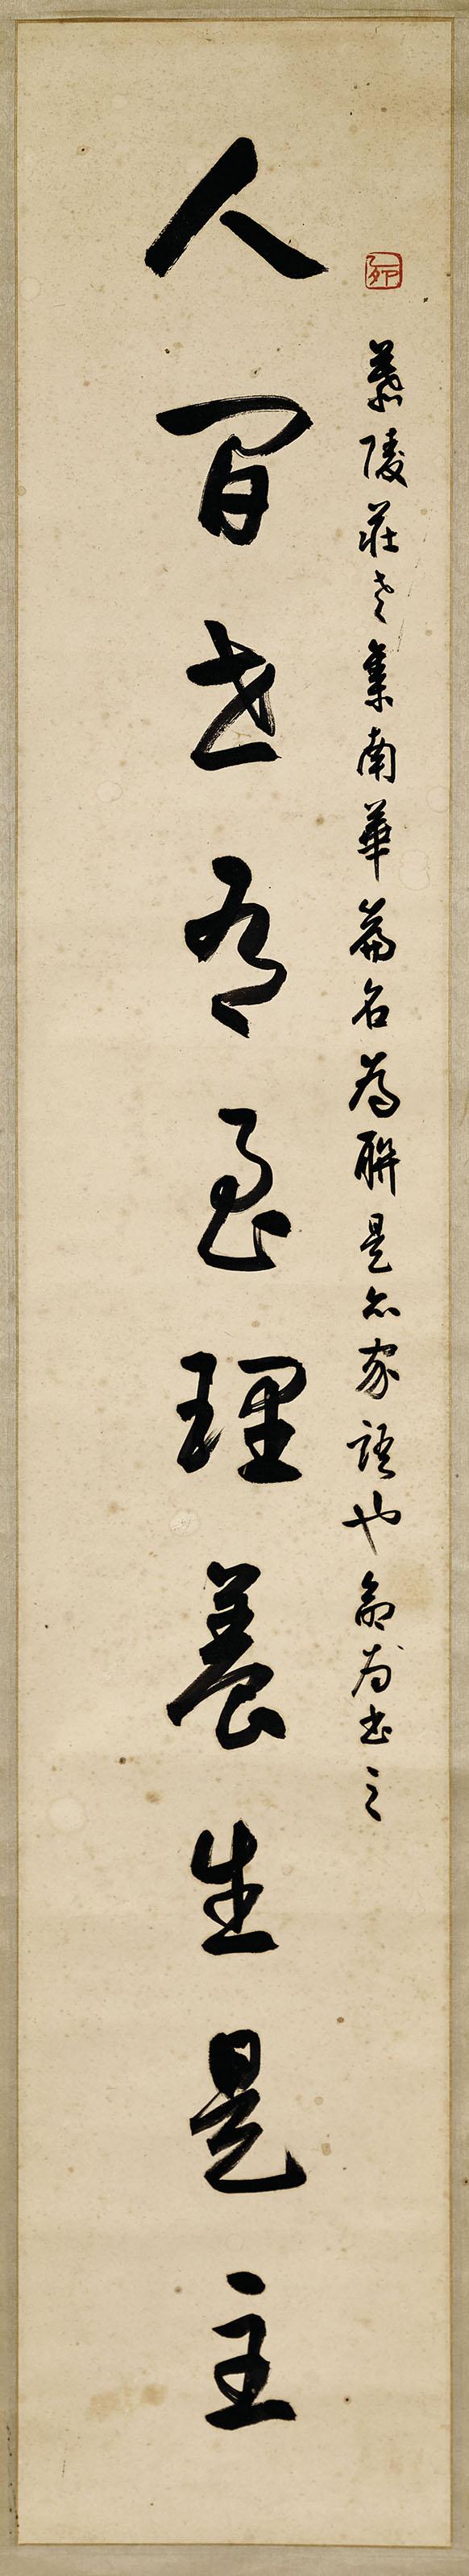 慕陵莊老集南華篇名為聯是亦家語也俞為書之
人間世有至理養生是主